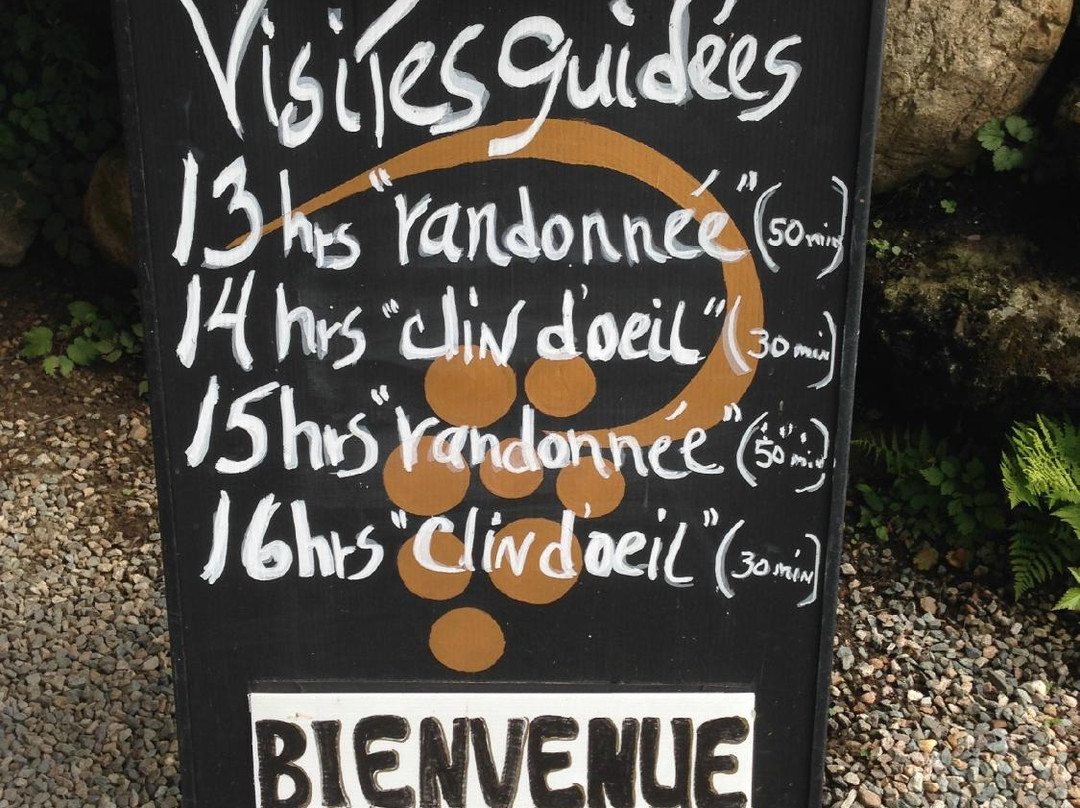 Visites guidées
13 hrs "randonnée" (50 min)
14 hrs "clin d'oeil" (30 min)
15 hrs "randonnée" (50 min)
16 hrs "Clin d'oeil" (30 min)
BIENVENUE